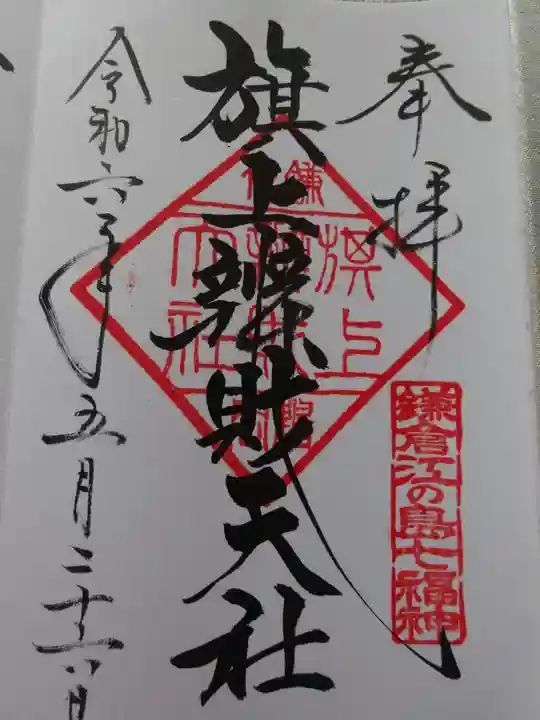 奉拝
鎌倉江の島七福神
旗上辨財天社
旗上
天社
令和六年五月二十六日